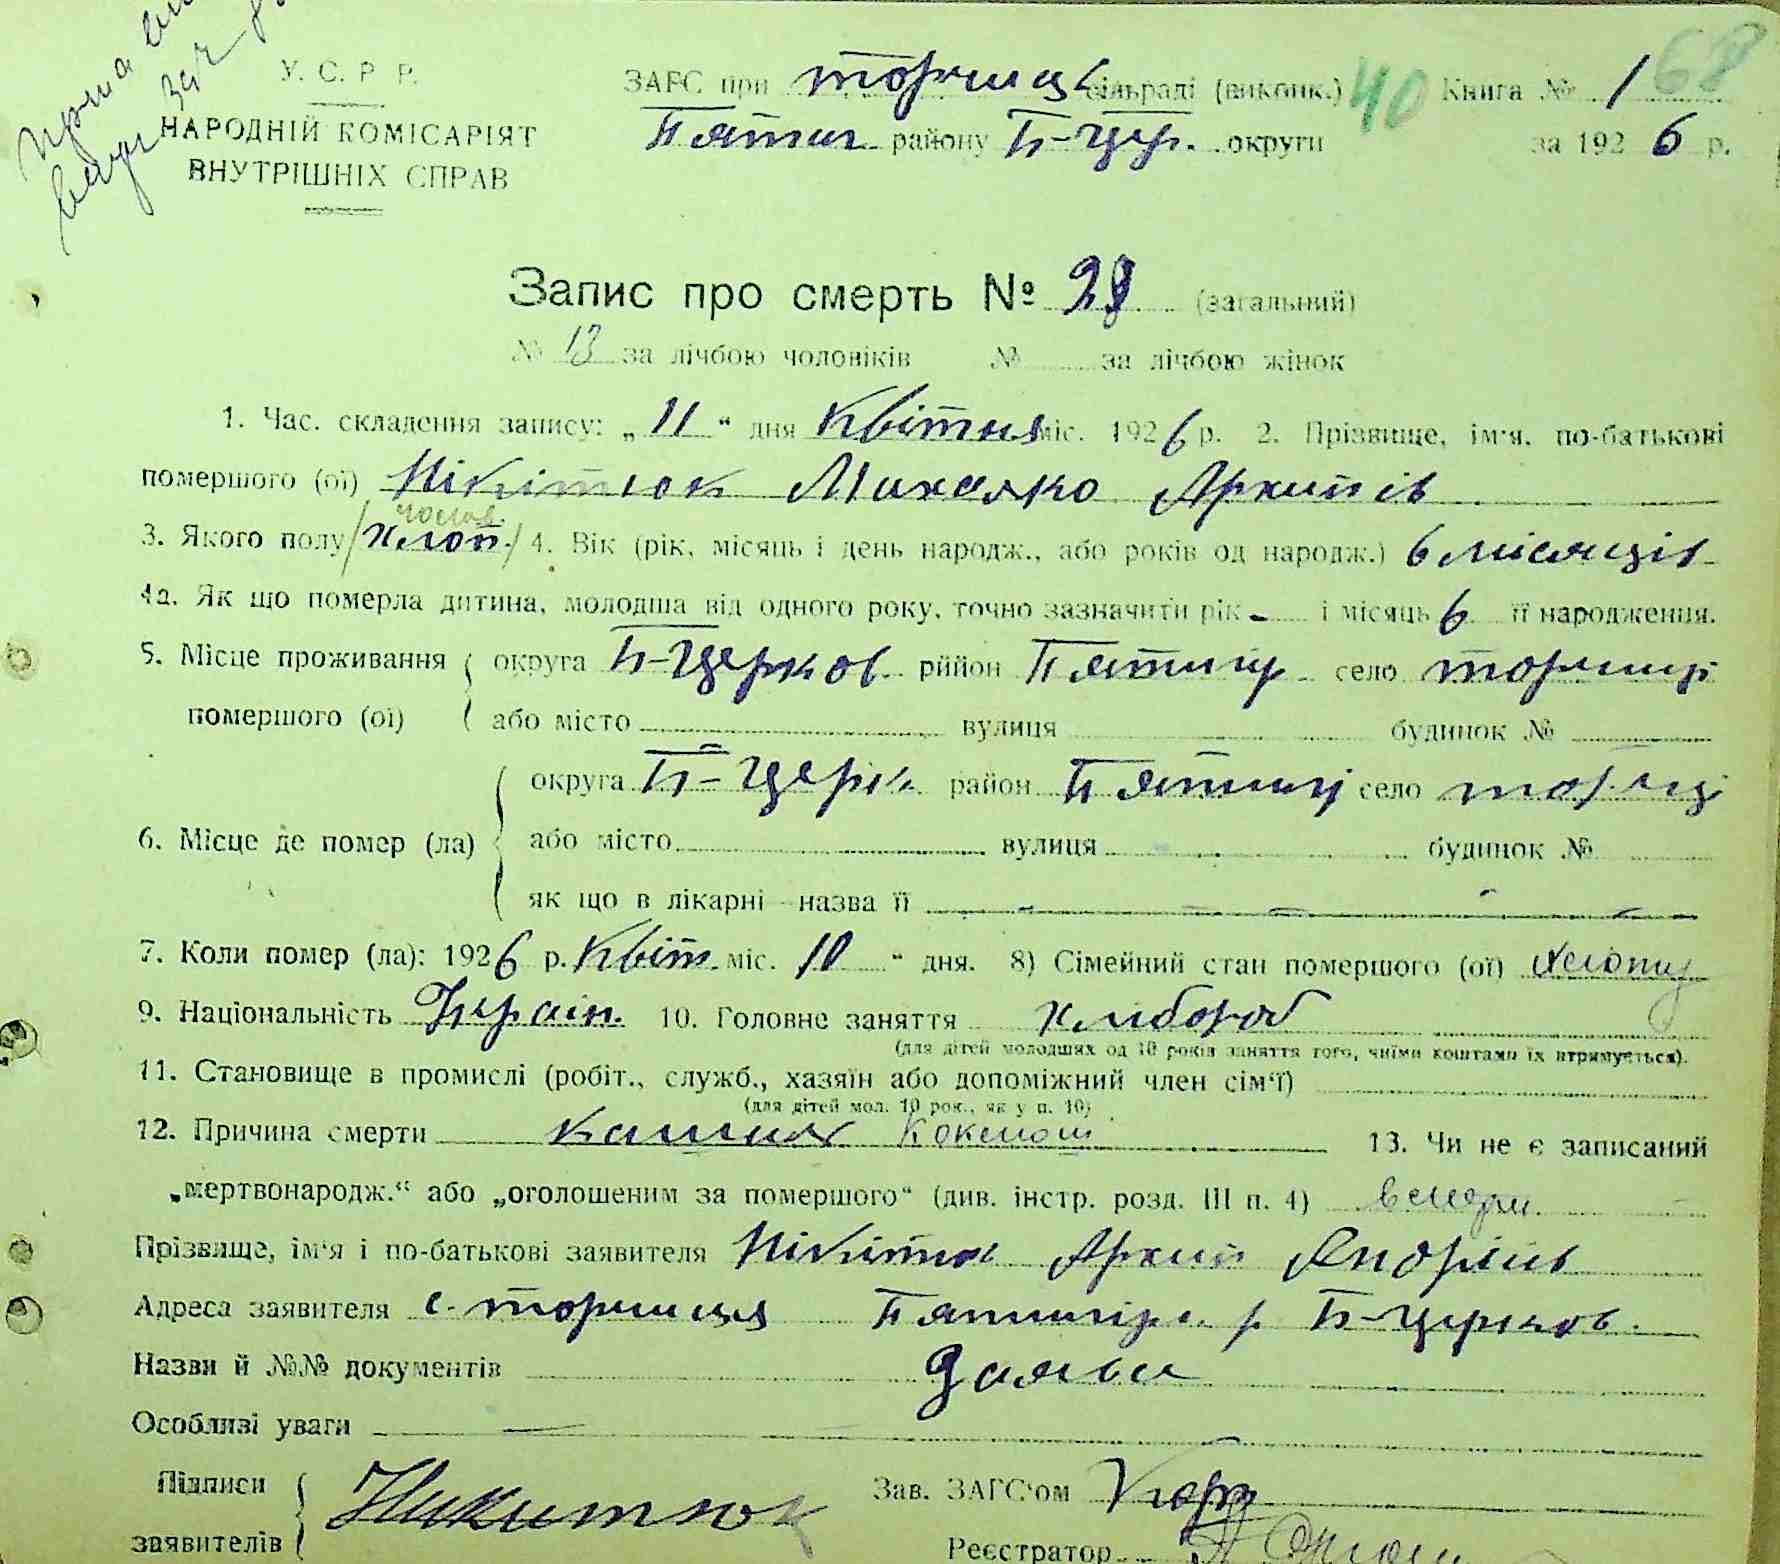 У. С. Р. Р.
НАРОДНІЙ КОМІСАРІЯТ
ВНУТРІШНІХ СПРАВ
ЗАГС при сільраді (виконк.) 40 Книга № 1 68
Пятиг. району Б-Цер. округи за 1926 р.
Запис про смерть № 28 (загальний)
№ 13 за лічбою чоловіків № за лічбою жінок
1. Час. складення запису: „11“ дня Квітня міс. 1926 р. 2. Прізвище, ім'я, по-батькові
помершого (ої) Нікітюк Михалко Архипів
3. Якого полу /Хлоп./ 4. Вік (рік, місяць і день народж., або років од народж.) 6 місяців
4а. Як що померла дитина, молодша від одного року, точно зазначити рік - і місяць 6 її народження.
5. Місце проживання помершого (ої) округа Б-Церков. район Пятигір село
або місто вулиця будинок №
6. Місце де помер (ла) округа Б-Церк. район село
або місто вулиця будинок №
як що в лікарні - назва її
7. Коли помер (ла): 1926 р. Квіт. міс. 10 “ дня. 8) Сімейний стан помершого (ої)
9. Національність Україн. 10. Головне заняття хлібороб
(для дітей молодших од 10 років заняття того, чиїми коштами їх втримується).
11. Становище в промислі (робіт., служб., хазяїн або допоміжний член сім'ї)
(для дітей мол. 10 рок., як у п. 10)
12. Причина смерти кашиль Коклюш 13. Чи не є записаний
„мертвонародж.“ або „оголошеним за помершого“ (див. інстр. розд. III п. 4)
Прізвище, ім'я і по-батькові заявителя Нікітюк Архип Андріїв
Адреса заявителя с. Пятигірс. р. Б-Церков.
Назви й №№ документів
Особливі уваги
Підписи заявителів Никитюк Зав. ЗАГС'ом
Реєстратор